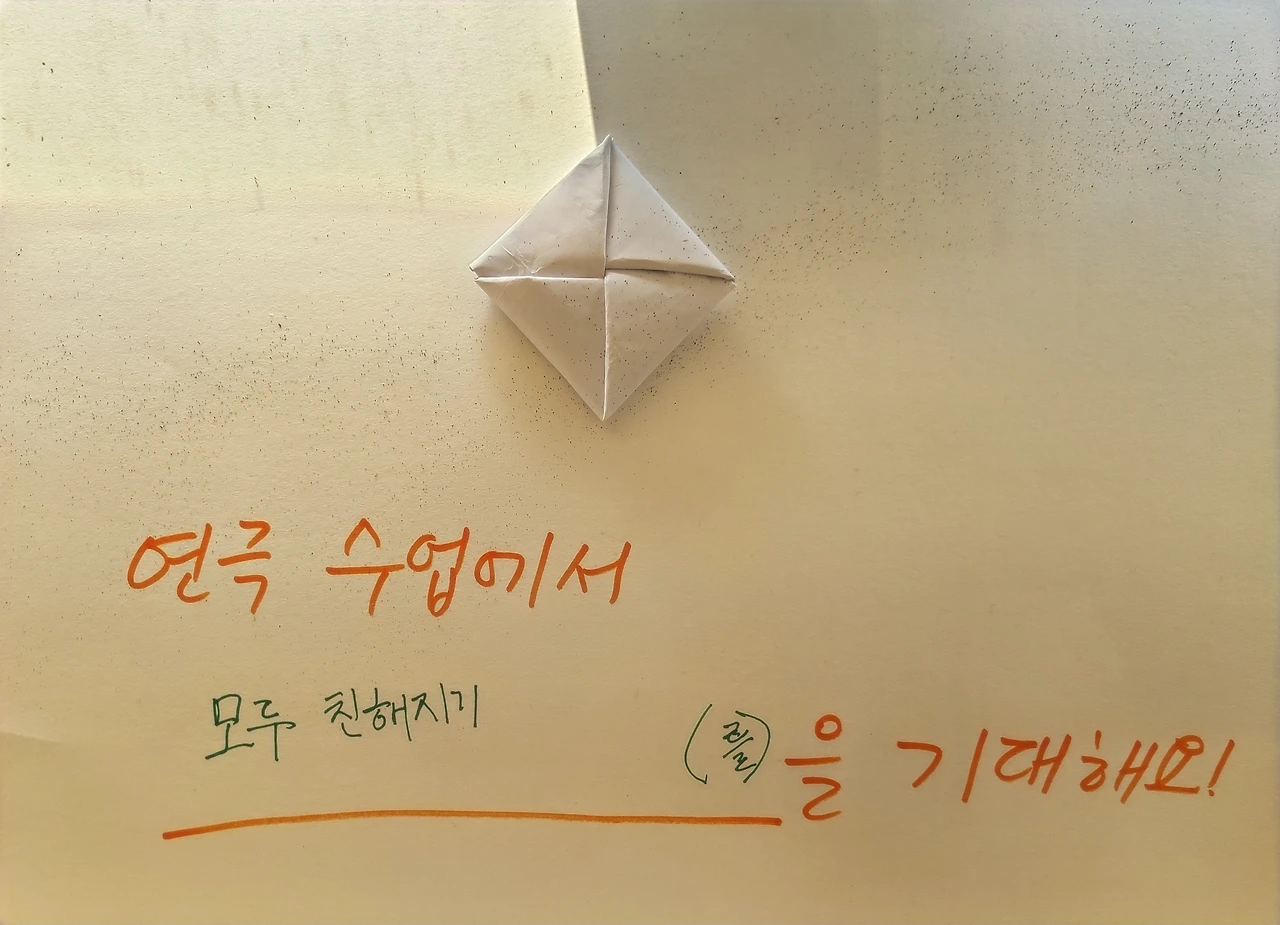 연극 수업에서
모두 친해지기 ( )을 기대해요!